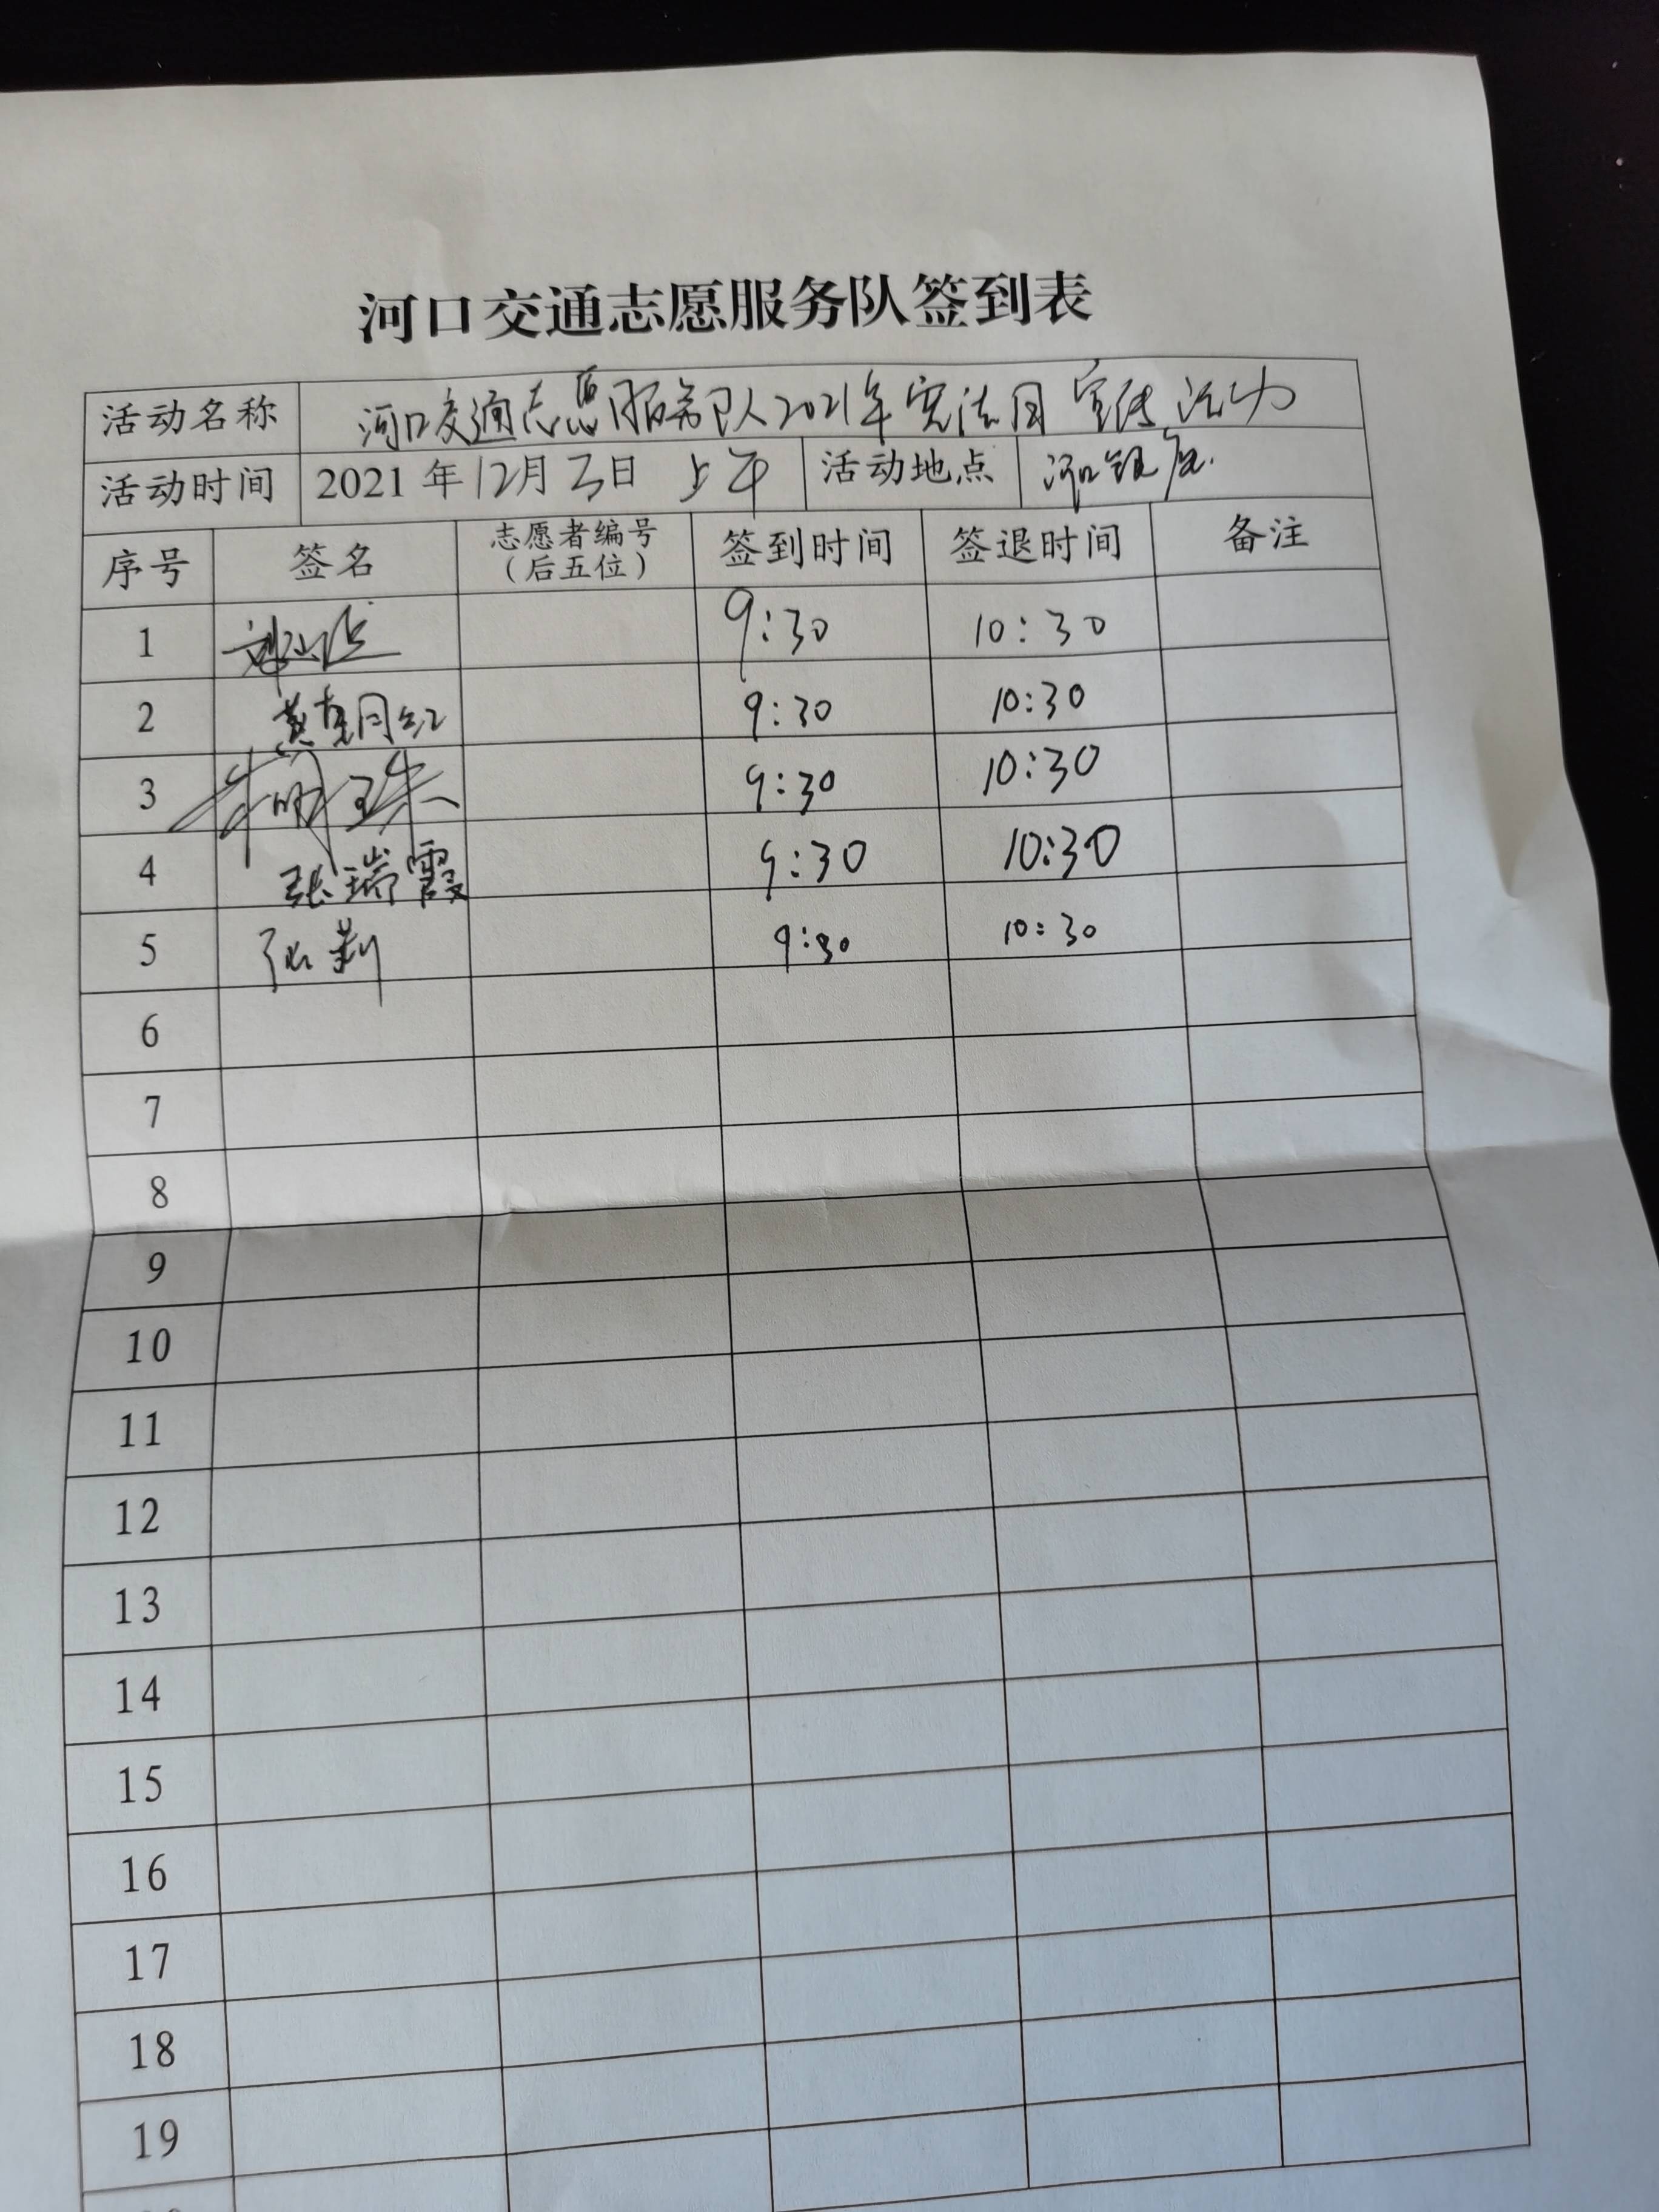 河口交通志愿服务队签到表
活动名称 河口交通志愿服务队2021年宪法日宣传活动
活动时间 2021年12月3日 上午 活动地点 河口镇
序号 签名 志愿者编号（后五位） 签到时间 签退时间 备注
1 9:30 10:30
2 黄 9:30 10:30
3 朱明珠 9:30 10:30
4 张瑞霞 9:30 10:30
5 张莉 9:30 10:30
6
7
8
9
10
11
12
13
14
15
16
17
18
19